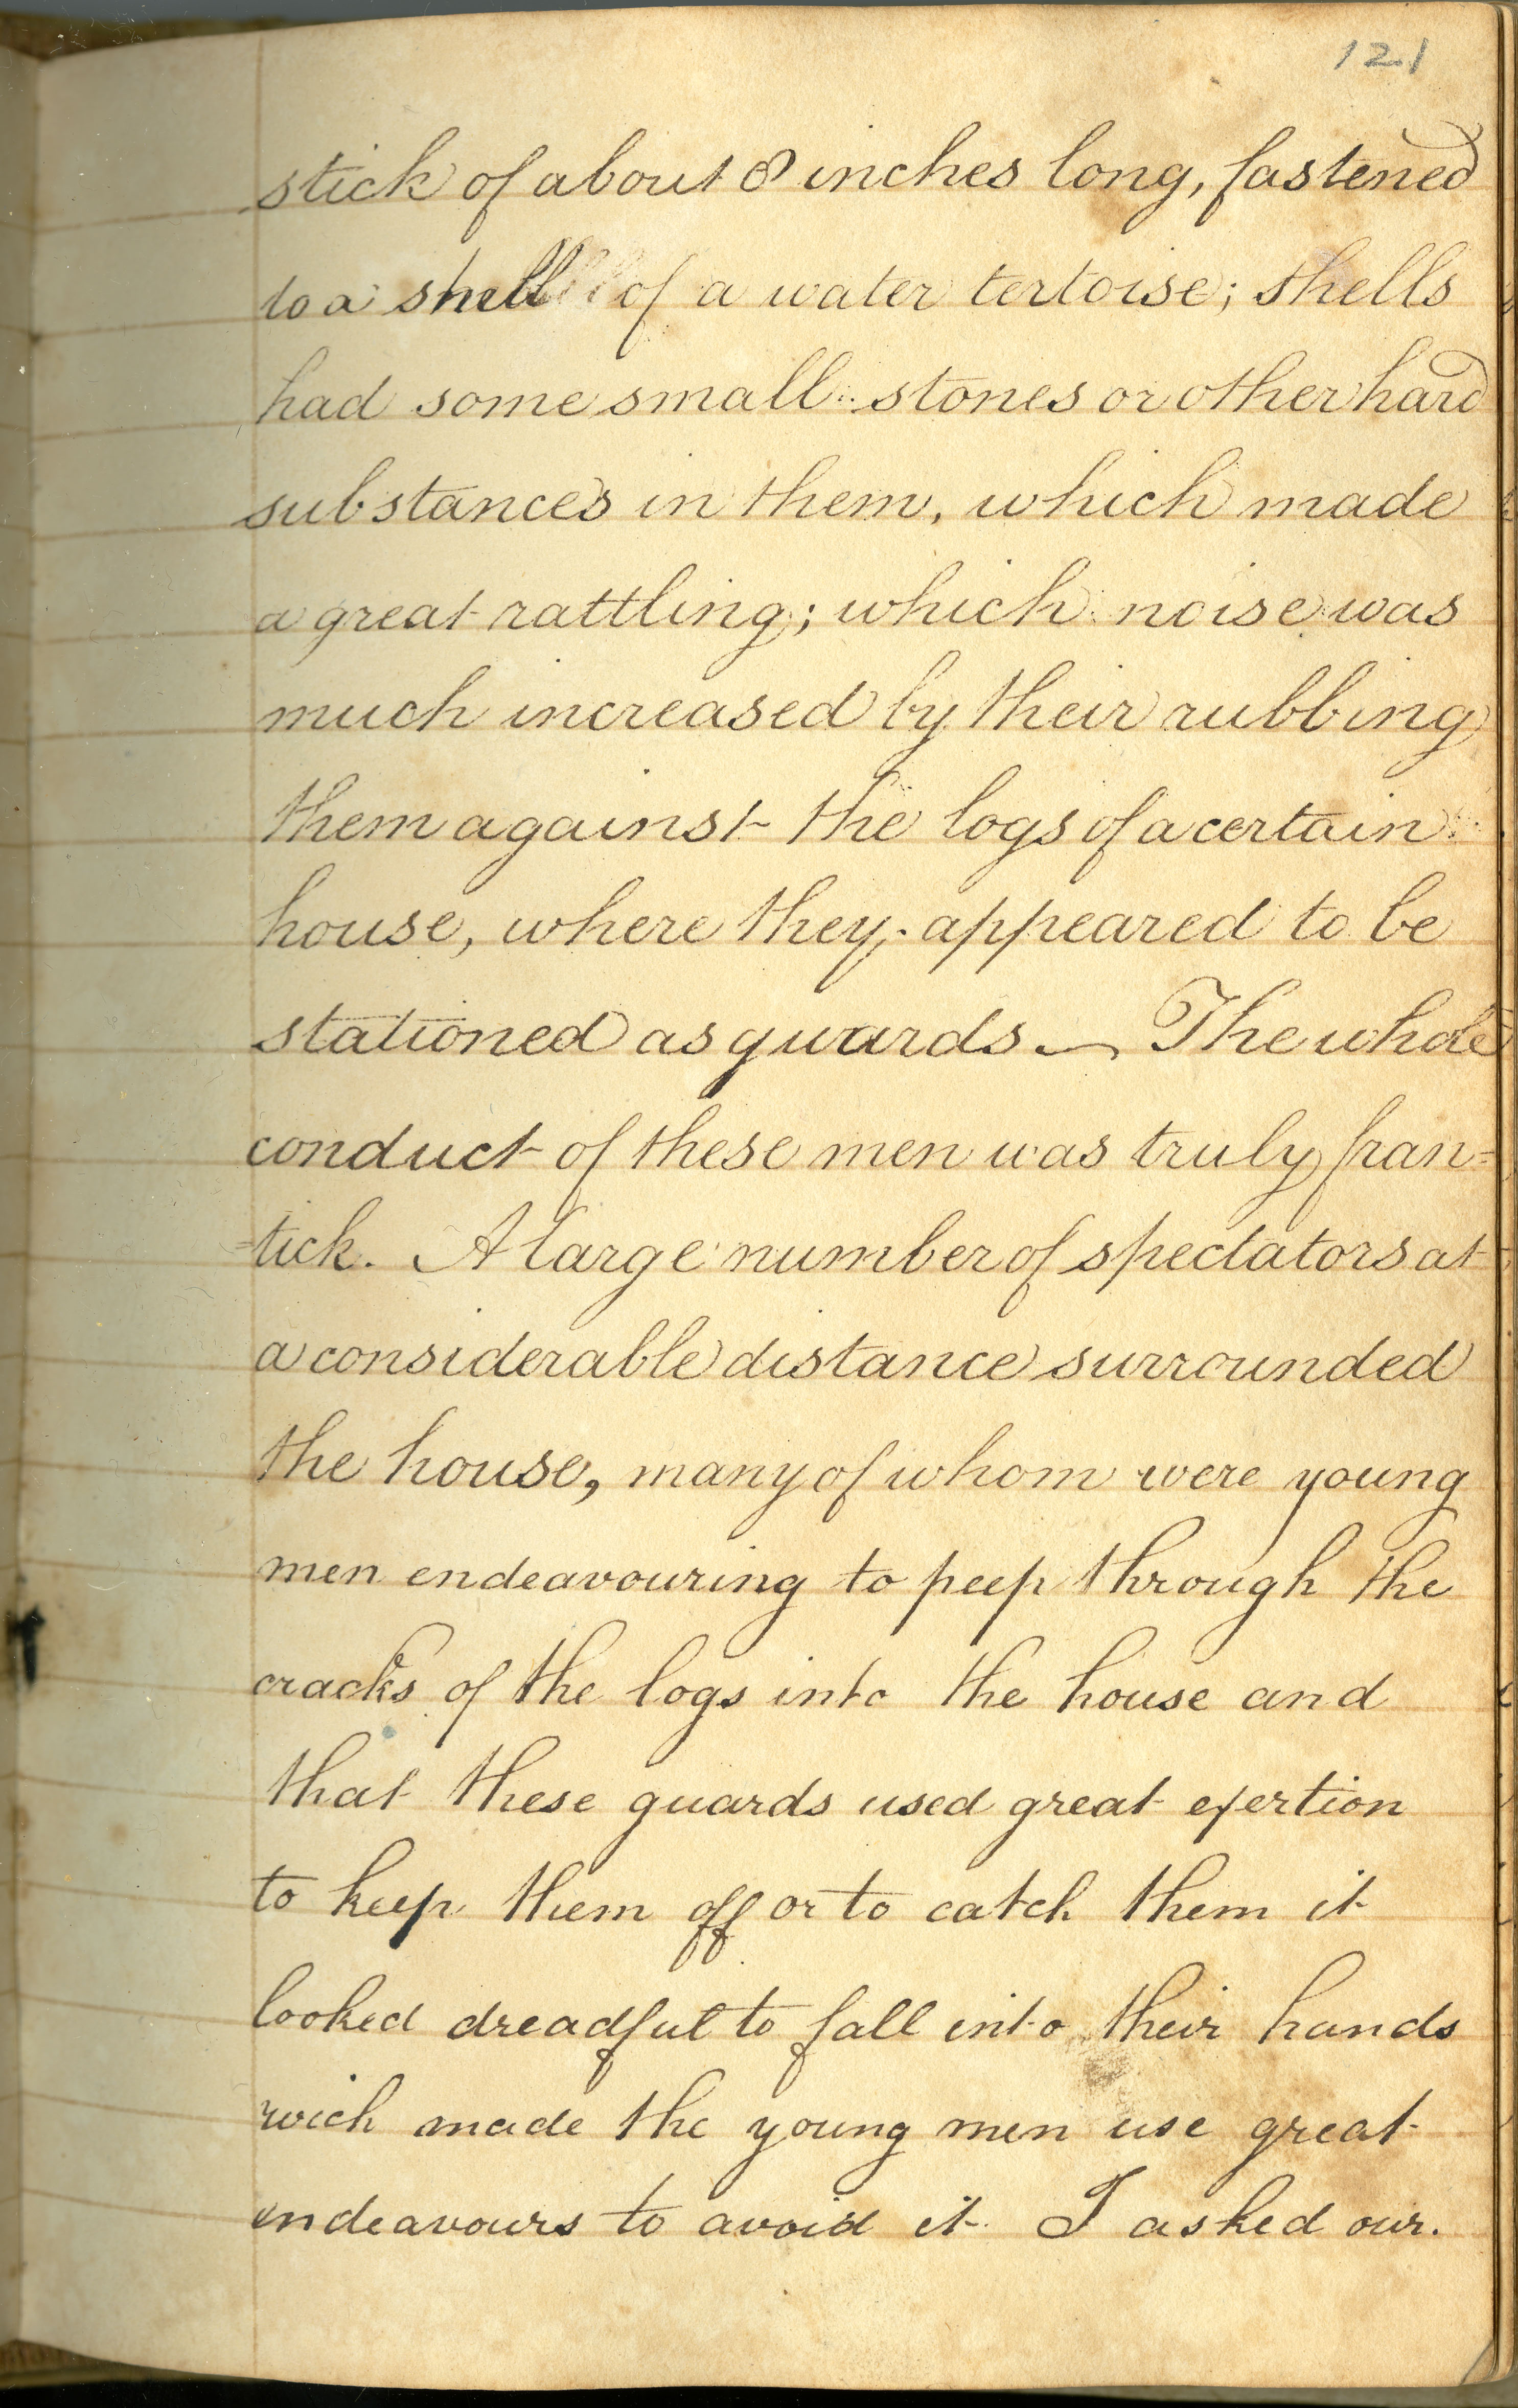 121
stick of about 8 inches long, fastened
to a shell of a water tertoise; shells
had some small stones or other hard
substances in them, which made
a great rattling; which noise was
much increased by their rubbing
them against the logs of a certain
house, where they appeared to be
stationed as guards — The whole
conduct of these men was truly fran=
=tick. A large number of spectators at
a considerable distance surrounded
the house, many of whom were young
men endeavouring to peep through the
cracks of the logs into the house and
that these guards used great exertion
to keep them off or to catch them it
looked dreadful to fall into their hands
wich made the young men use great
endeavours to avoid it I asked our.